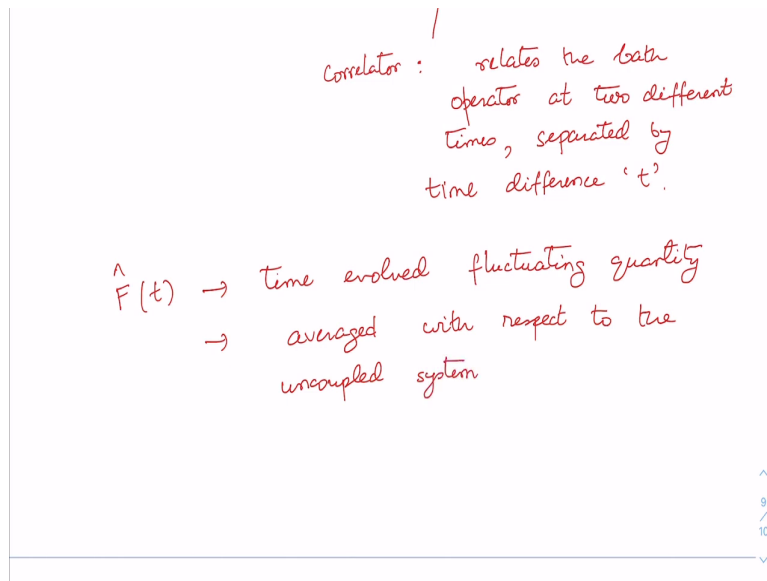 Correlator : relates the bath
operator at two different
times, separated by
time difference 't'.
F̂(t) → time evolved fluctuating quantity
→ averaged with respect to the
uncoupled system
9
/
10